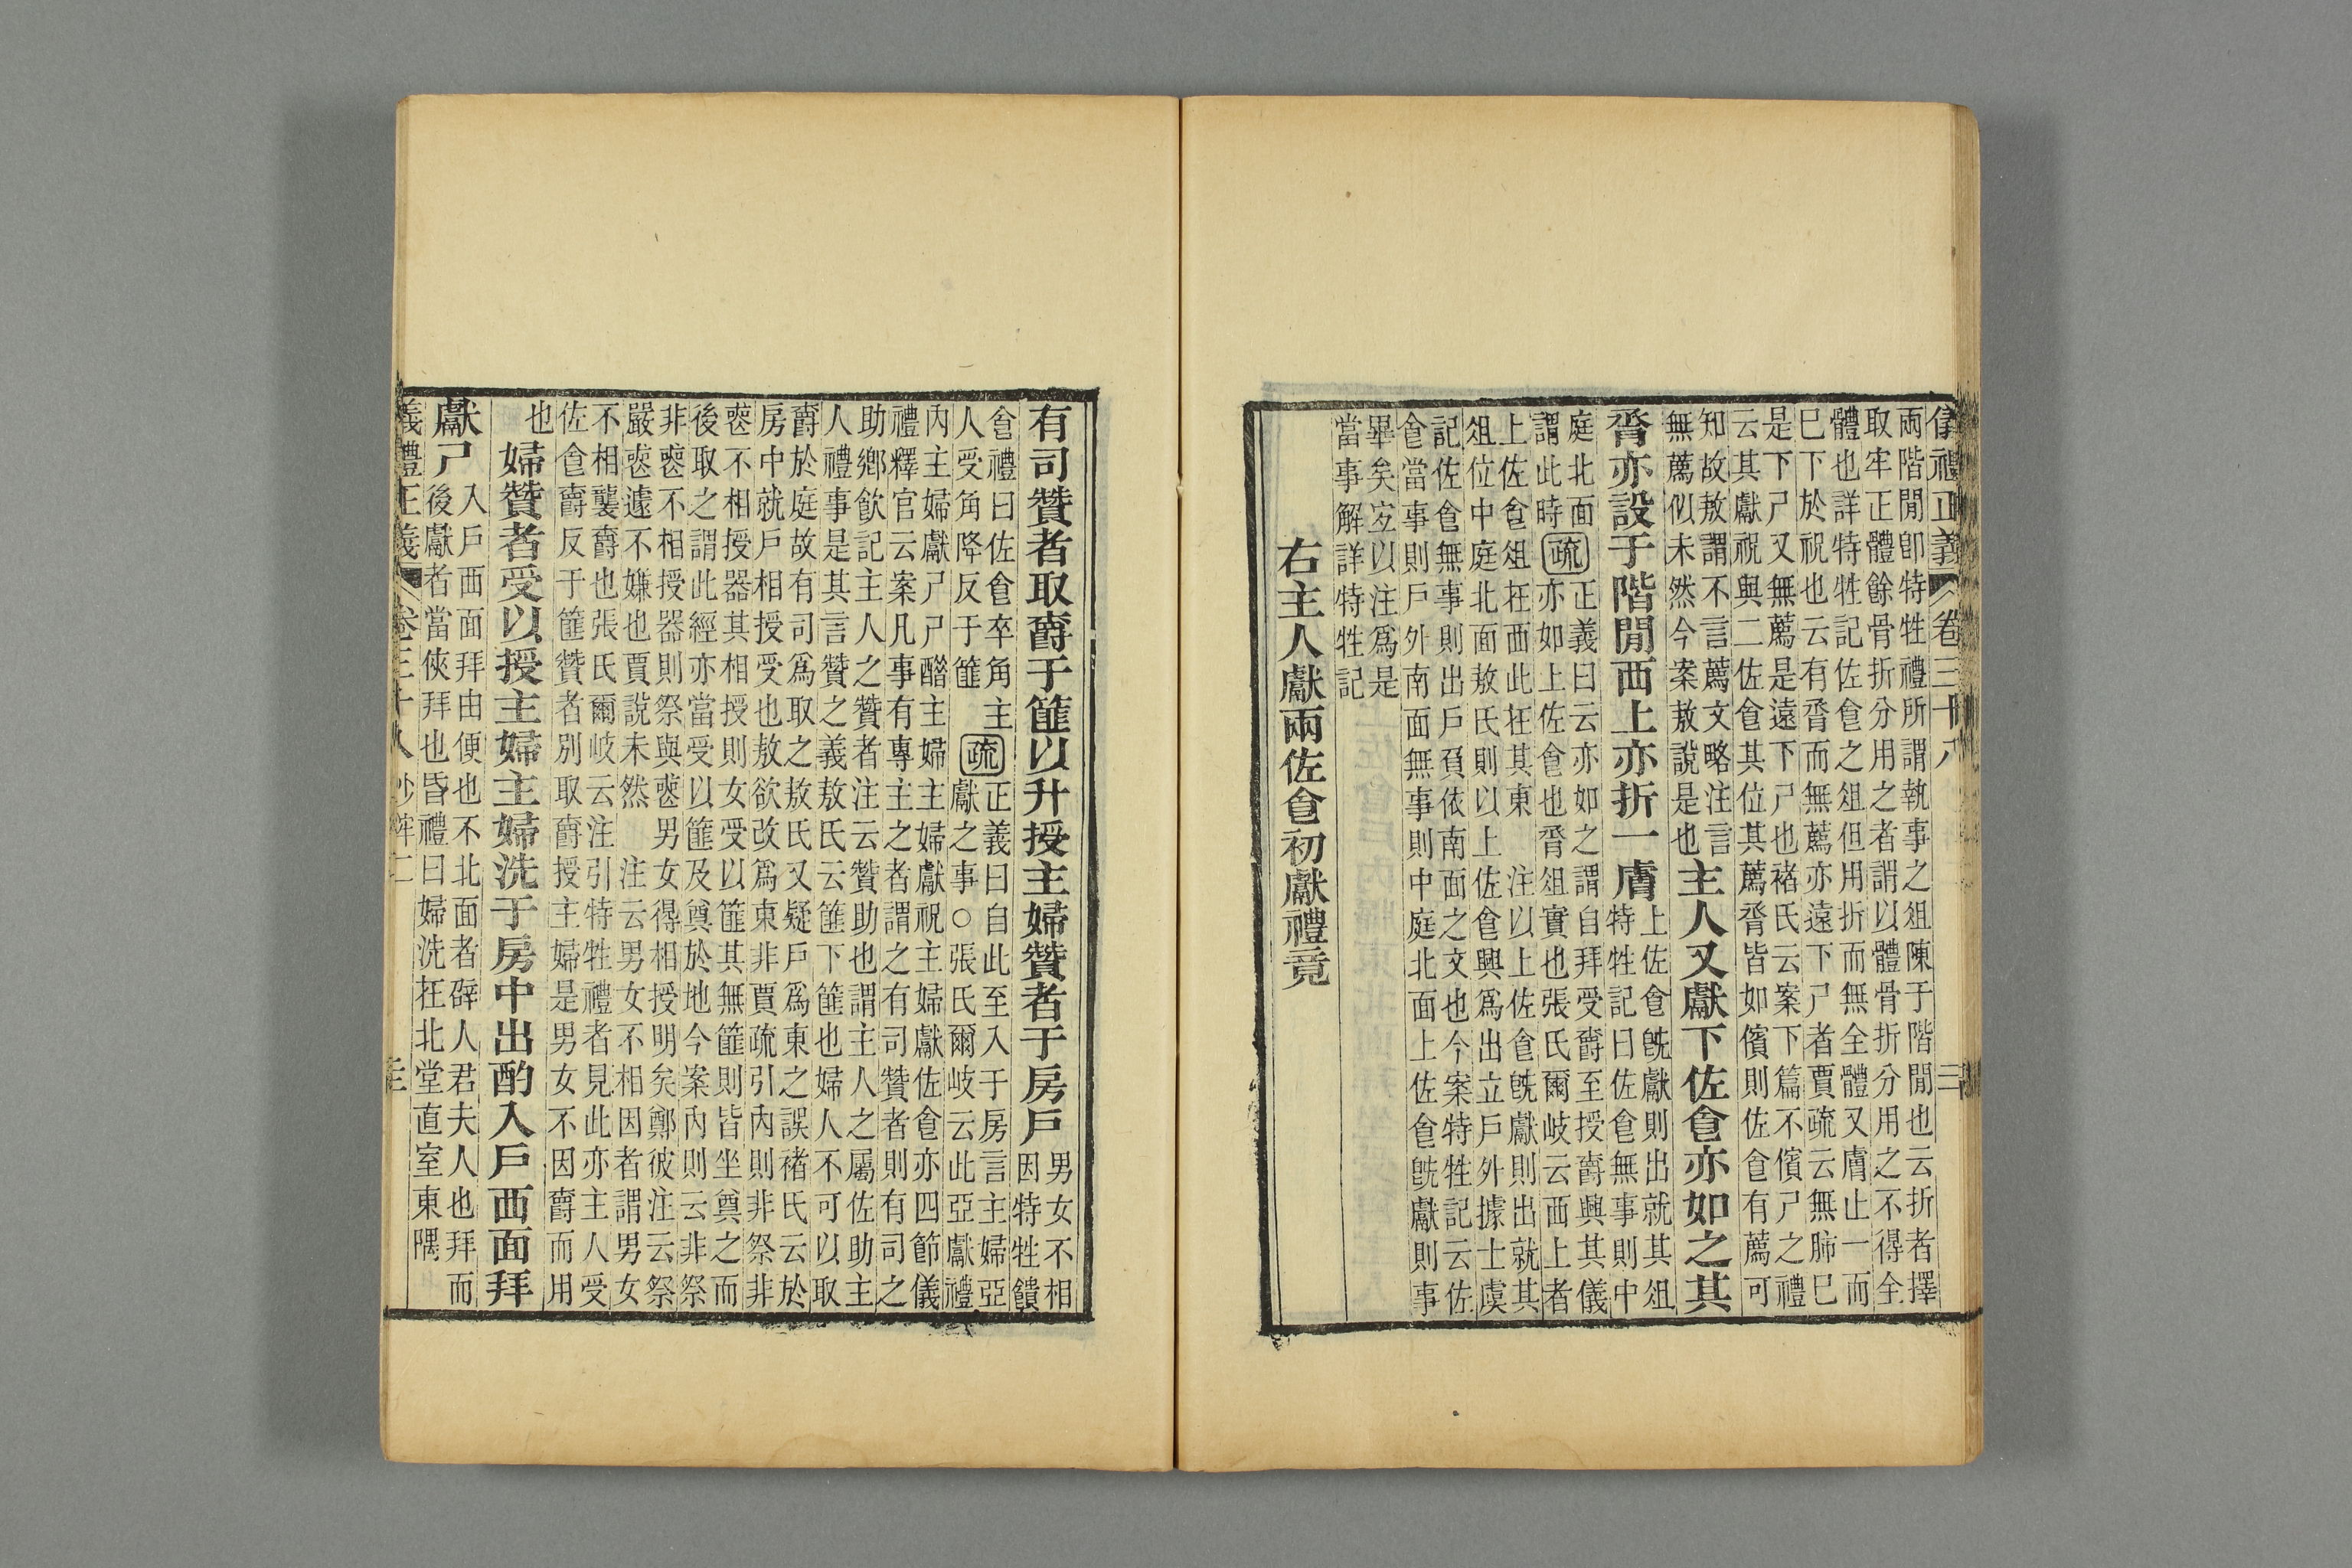 儀禮正義 卷三十八
兩階閒卽特牲禮所謂執事之俎陳于階閒也云折者擇
取牢正體餘骨折分用之者謂以體骨折分用之不得全
體也詳特牲記佐食之俎但用折而無全體又膚止一而
巳下於祝也云有脀而無薦亦遠下尸者賈疏云無肺巳
是下尸又無薦是遠下尸也褚氏云案下篇不儐尸之禮
云其獻祝與二佐食其位其薦脀皆如儐則佐食有薦可
知故敖謂不言薦文略注言
無薦似未然今案敖說是也
主人又獻下佐食亦如之其
脀亦設于階閒西上亦折一膚
上佐食旣獻則出就其俎
特牲記曰佐食無事則中
庭北面
謂此時
疏
正義曰云亦如之謂自拜受爵至授爵興其儀
亦如上佐食也脀俎實也張氏爾岐云西上者
上佐食俎在西此在其東 注以上佐食旣獻則出就其
俎位中庭北面敖氏則以上佐食興爲出立戶外據士虞
記佐食無事則出戶負依南面之文也今案特牲記云佐
食當事則戶外南面無事則中庭北面上佐食旣獻則事
畢矣宐以注爲是
當事解詳特牲記
右主人獻兩佐食初獻禮竟
有司贊者取爵于篚以升授主婦贊者于房戶
男女不相
因特牲饋
食禮曰佐食卒角主
人受角降反于篚
疏
正義曰自此至入于房言主婦亞
獻之事○張氏爾岐云此亞獻禮
內主婦獻尸尸醋主婦主婦獻祝主婦獻佐食亦四節儀
禮釋官云案凡事有專主之者謂之有司贊者則有司之
助鄉飮記主人之贊者注云贊助也謂主人之屬佐助主
人禮事是其言贊之義敖氏云篚下篚也婦人不可以取
爵於庭故有司爲取之敖氏又疑戶爲東之誤褚氏云於
房中就戶相授受也敖欲改爲東非賈疏引內則非祭非
喪不相授器其相授則女受以篚其無篚則皆坐奠之而
後取之謂此經亦當受以篚及奠於地今案內則云非祭
非喪不相授器則祭與喪男女得相授明矣鄭彼注云祭
嚴喪遽不嫌也賈說未然 注云男女不相因者謂男女
不相襲爵也張氏爾岐云注引特牲禮者見此亦主人受
佐食爵反于篚贊者別取爵授主婦是男女不因爵而用
也
婦贊者受以授主婦主婦洗于房中出酌入戶西面拜
獻尸
入戶西面拜由便也不北面者辟人君夫人也拜而
後獻者當俠拜也昏禮曰婦洗在北堂直室東隅